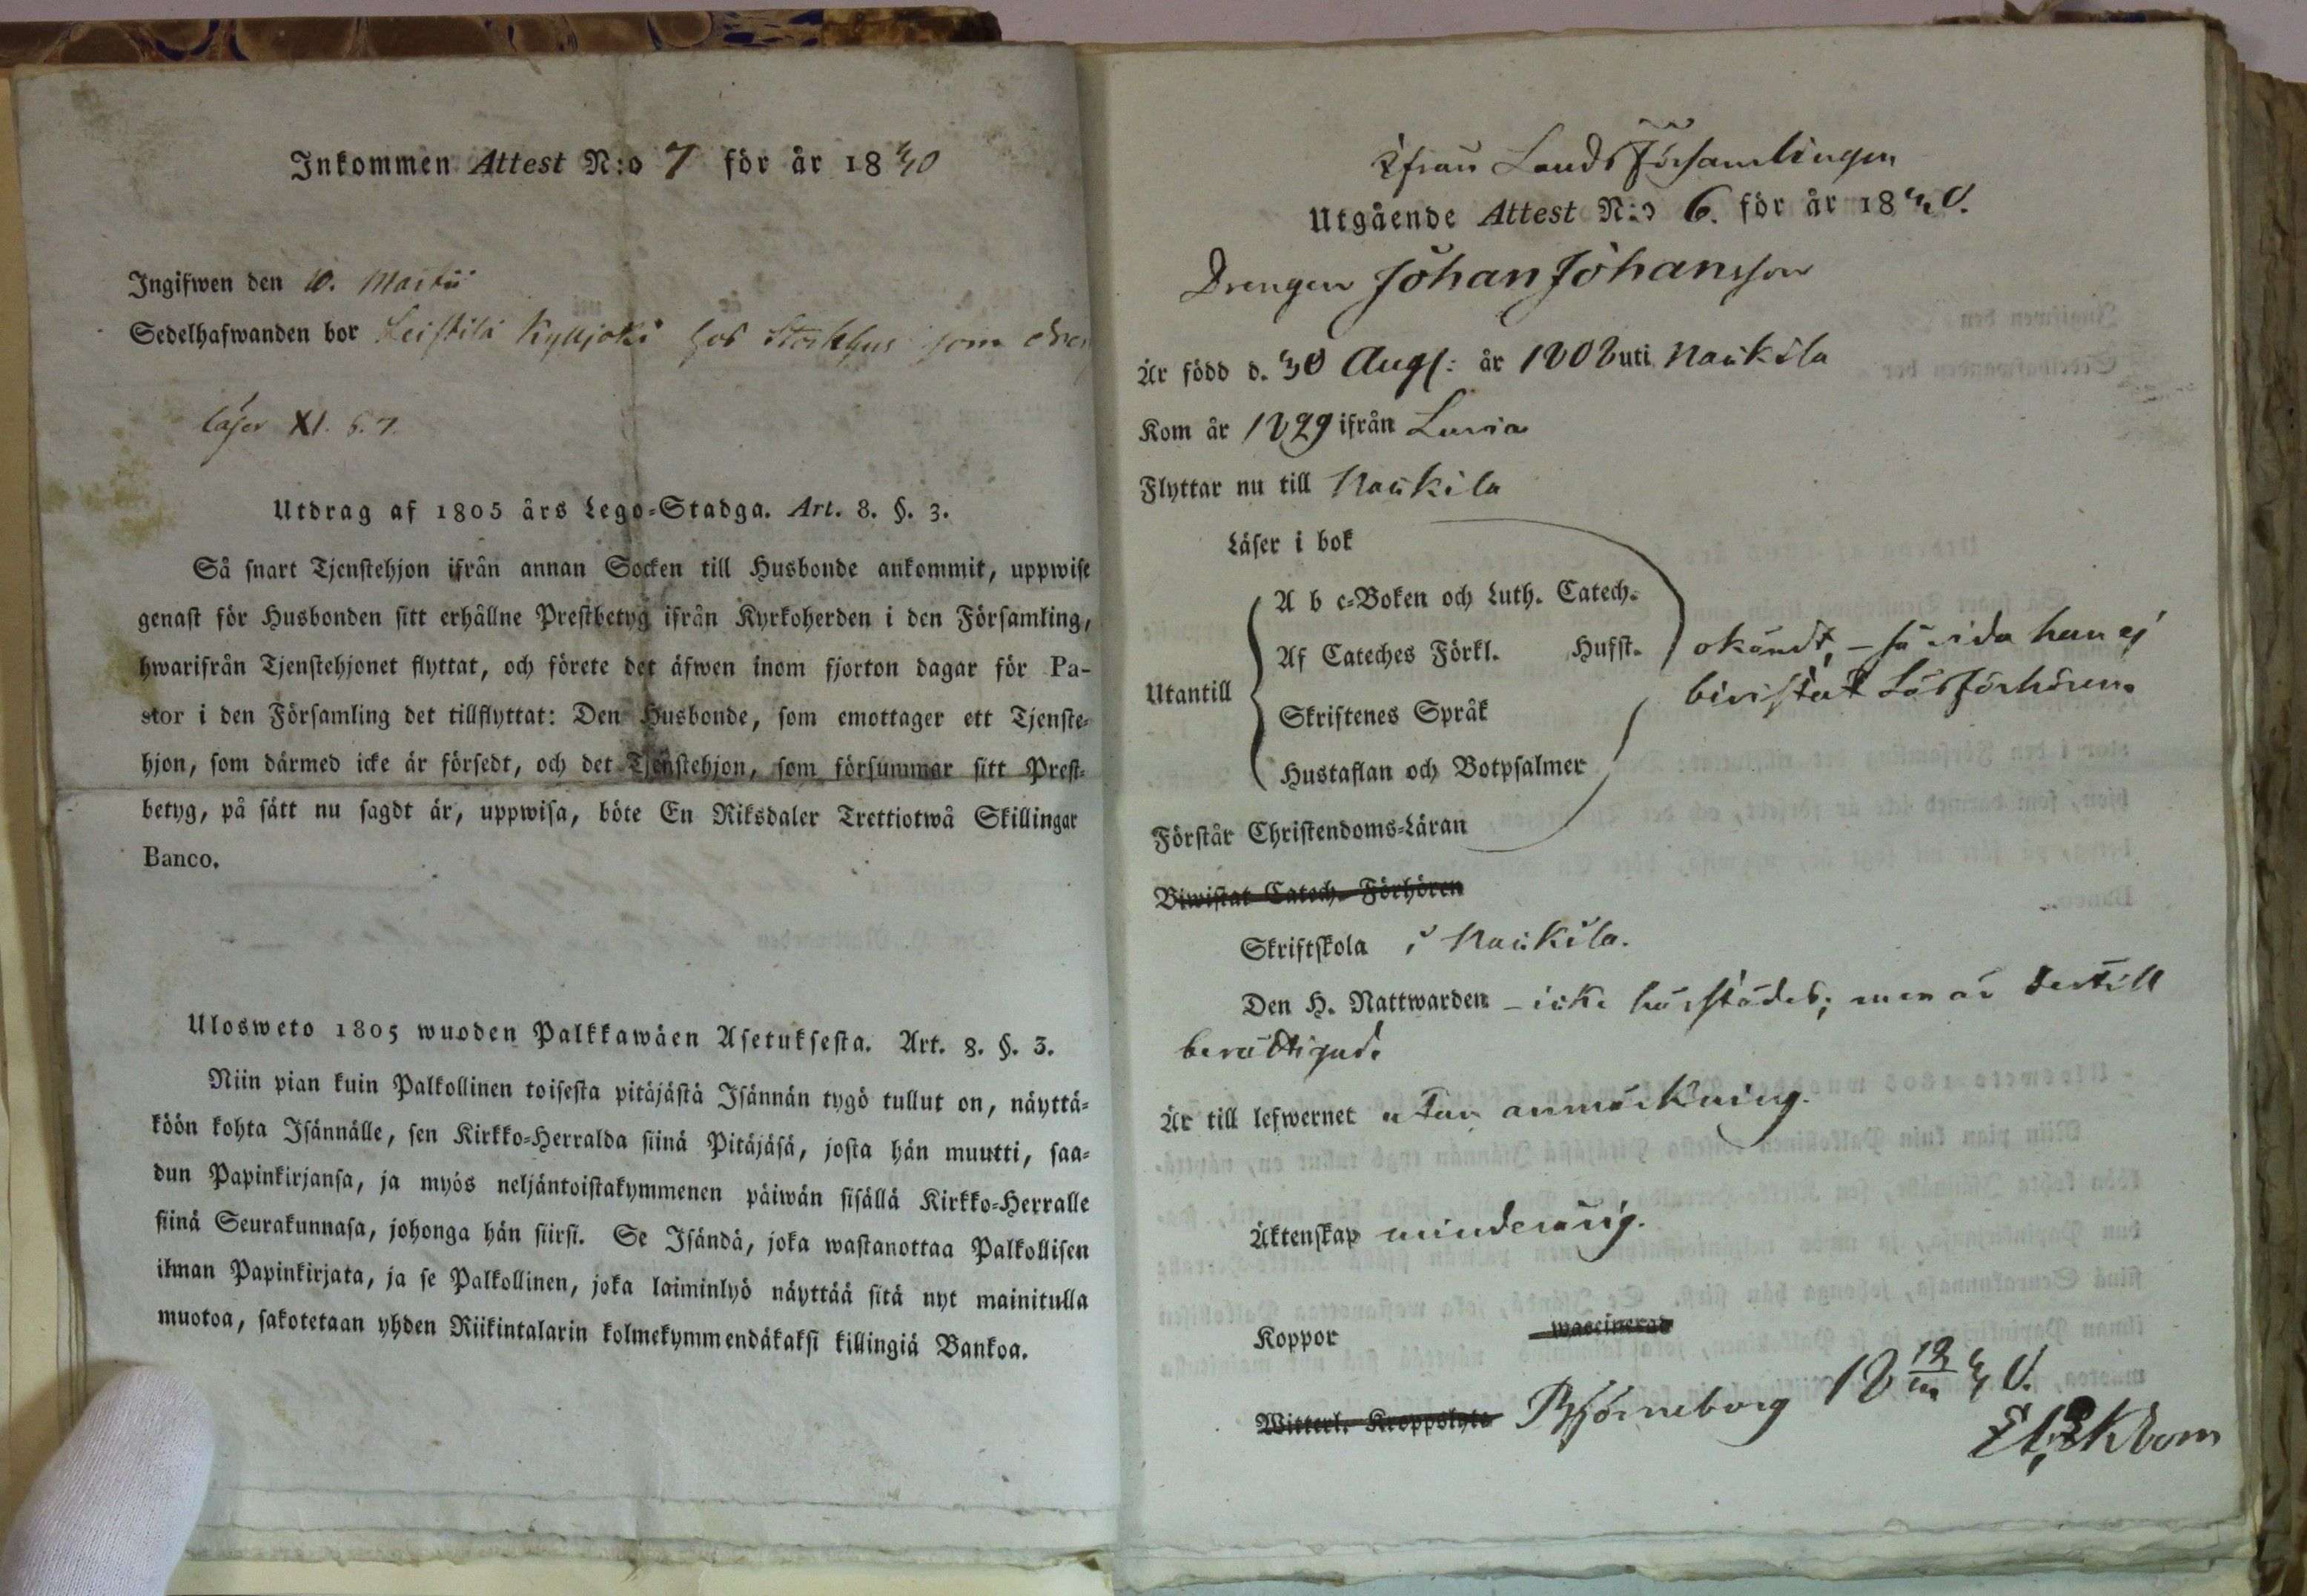 Inkommen Attest N:o 7 för år 1830
Ingifwen den 10. Martii
Sedelhafwanden bor Leistilä Kylljoki hos som
läser XI. 6. 7.
Utdrag af 1805 års Lego-Stadga. Art. 8. §. 3.
Så snart Tjenstehjon ifrån annan Socken till Husbonde ankommit, uppwise
genast för Husbonden sitt erhållne Prestbetyg ifrån Kyrkoherden i den Församling,
hwarifrån Tjenstehjonet flyttat, och förete det äfwen inom fjorton dagar för Pa-
stor i den Församling det tillflyttat: Den Husbonde, som emottager ett Tjenste-
hjon, som därmed icke är försedt, och det Tjenstehjon, som försummar sitt Prest-
betyg, på sätt nu sagdt är, uppwisa, böte En Riksdaler Trettiotwå Skillingar
Banco.
Ulosweto 1805 wuoden Palkkawäen Asetuksesta. Art. 8. §. 3.
Niin pian kuin Palkollinen toisesta pitäjästä Isännän tygö tullut on, näyttä-
köön kohta Isännälle, sen Kirkko-Herralda siinä Pitäjäsä, josta hän muutti, saa-
dun Papinkirjansa, ja myös neljäntoistakymmenen päiwän sisällä Kirkko-Herralle
siinä Seurakunnasa, johonga hän siirsi. Se Isändä, joka wastanottaa Palkollisen
ilman Papinkirjata, ja se Palkollinen, joka laiminlyö näyttää sitä nyt mainitulla
muotoa, sakotetaan yhden Riikintalarin kolmekymmendäkaksi killingiä Bankoa.
Ifrån Landsförsamlingen
Utgående Attest N:o 6. för år 1830.
Drengen Johan Johansson
Är född d. 30 Aug: år 1808 uti Naukila
Kom år 1829 ifrån Luvia
Flyttar nu till Naukila
Läser i bok
A b c-Boken och Luth. Catech.
Af Cateches Förkl. Hufst. okändt, – så vida han ej
Utantill bivistat Läsförhören.
Skriftenes Språk
Hustaflan och Botpsalmer
Förstår Christendoms-Läran
Biwistat Catech. Förhören
Skriftskola i Naukila.
Den H. Nattwarden – icke härstädes; men är dertill
berättigad.
Är till lefwernet utan anmärkning.
Äktenskap minderårig.
Koppor waccinerad
Witterl. Kroppslyte Björneborg 18 12/III 30.